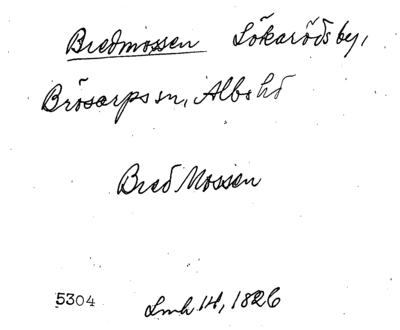 Bredmossen Lökaröds by,
Brösarps sn, Albo hd
Bred Mossen
5304 Lmk 14, 1826